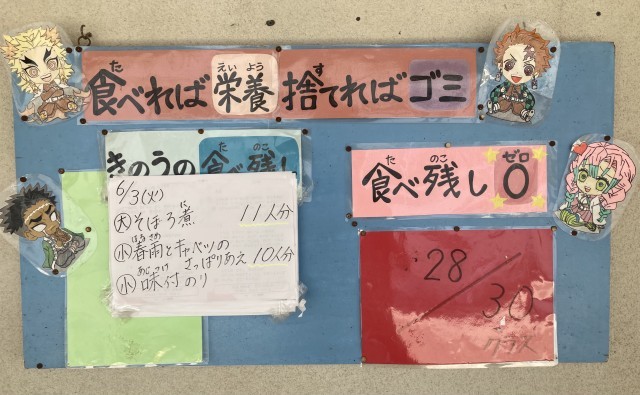 食べれば栄養 捨てればゴミ
きのうの食べ残し
6/3(火)
大 そぼろ煮 11人分
小 春雨とキャベツの
さっぱりあえ 10人分
小 味付のり
食べ残し0
28/30
クラス